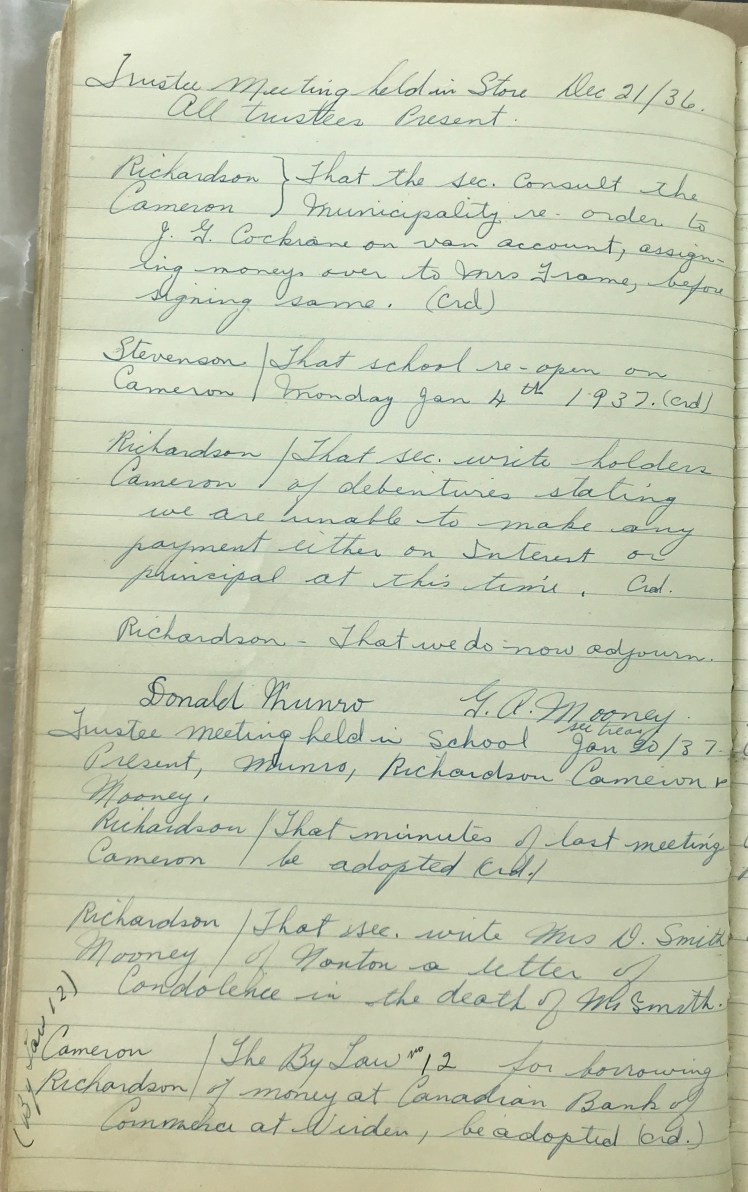 Trustee Meeting held in Store Dec 21/36.
All trustees Present.
Richardson } That the sec. Consult the
Cameron } Municipality re- order to
J. G. Cockrane on van account, assign-
ing moneys over to Mrs Frame, before
signing same. (Crd)
Stevenson / That school re-open on
Cameron / Monday Jan 4th 1937. (crd)
Richardson / That sec. write holders
Cameron / of debentures stating
we are unable to make any
payment either on Interest or
principal at this time. Crd.
Richardson - That we do now adjourn.
Donald Munro G. A. Mooney.
sec treas
Trustee meeting held in School Jan 20/37.
Present, Munro, Richardson Cameron &
Mooney.
Richardson / That minutes of last meeting
Cameron / be adopted (crd.)
Richardson / That sec. write Mrs D. Smith
Mooney / of Nanton a letter of
Condolence in the death of Mr Smith.
Cameron / The By Law No 12 for borrowing
Richardson / of money at Canadian Bank of
Commerce at Virden, be adopted (crd.)
(By Law 12)